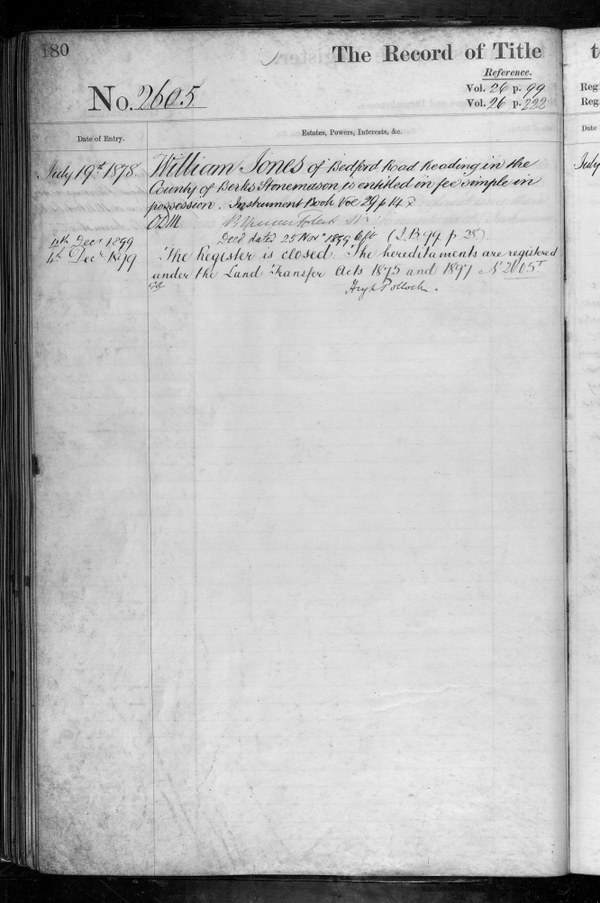 180
The Record of Title
Reference.
No. 2605
Vol. 26 p. 99
Vol. 26 p. 222
Date of Entry.
Estates, Powers, Interests, &c.
July 19th 1878. William Jones of Bedford Road Reading in the
County of Berks Stonemason is entitled in fee simple in
possession. Instrument Book Vol 29 p 14
4th Decr 1899 Deed dated 25 Novr 1899 (I.B. 99. p. 25)
4th Decr 1899 The Register is closed. The hereditaments are registered
under the Land Transfer Acts 1875 and 1897 No 2605
Hugh Pollock.
t
Reg
Reg
Date
July